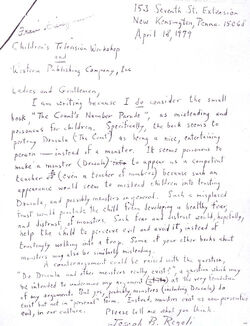 153 Seventh St. Extension
New Kensington, Penna. 15068
April 18, 1979
Children's Television Workshop
and
Western Publishing Company, Inc
Ladies and Gentlemen,
I am writing because I do consider the small
book "The Count's Number Parade", as misleading and
poisonous for children. Specifically, the book seems to
portray Dracula ("The Count") as being a nice, entertaining
person — instead of a monster. It seems poisonous
to make a monster (Dracula) to appear as a competent
teacher (even a teacher of numbers) because such an
appearance would seem to mislead children into trusting
Dracula, and possibly monsters in general. Such a misplaced
trust would preclude the child from developing a healthy fear,
and distrust of monsters. Such fear and distrust would, hopefully,
help the child to perceive evil and avoid it, instead of
trustingly walking into a trap. Some of your other books about
monsters may also be similarly misleading.
A counterargument could be raised with the question,
"Do Dracula and other monsters really exist?", a question which may
be intended to undermine my argument the very foundation
of my argument. But yes, probably monsters (including Dracula) do
exist but not in "personal" form. Instead, monsters exist as non-personal
evil, in our culture.
Please tell me what you think.
Joseph B. Regoli